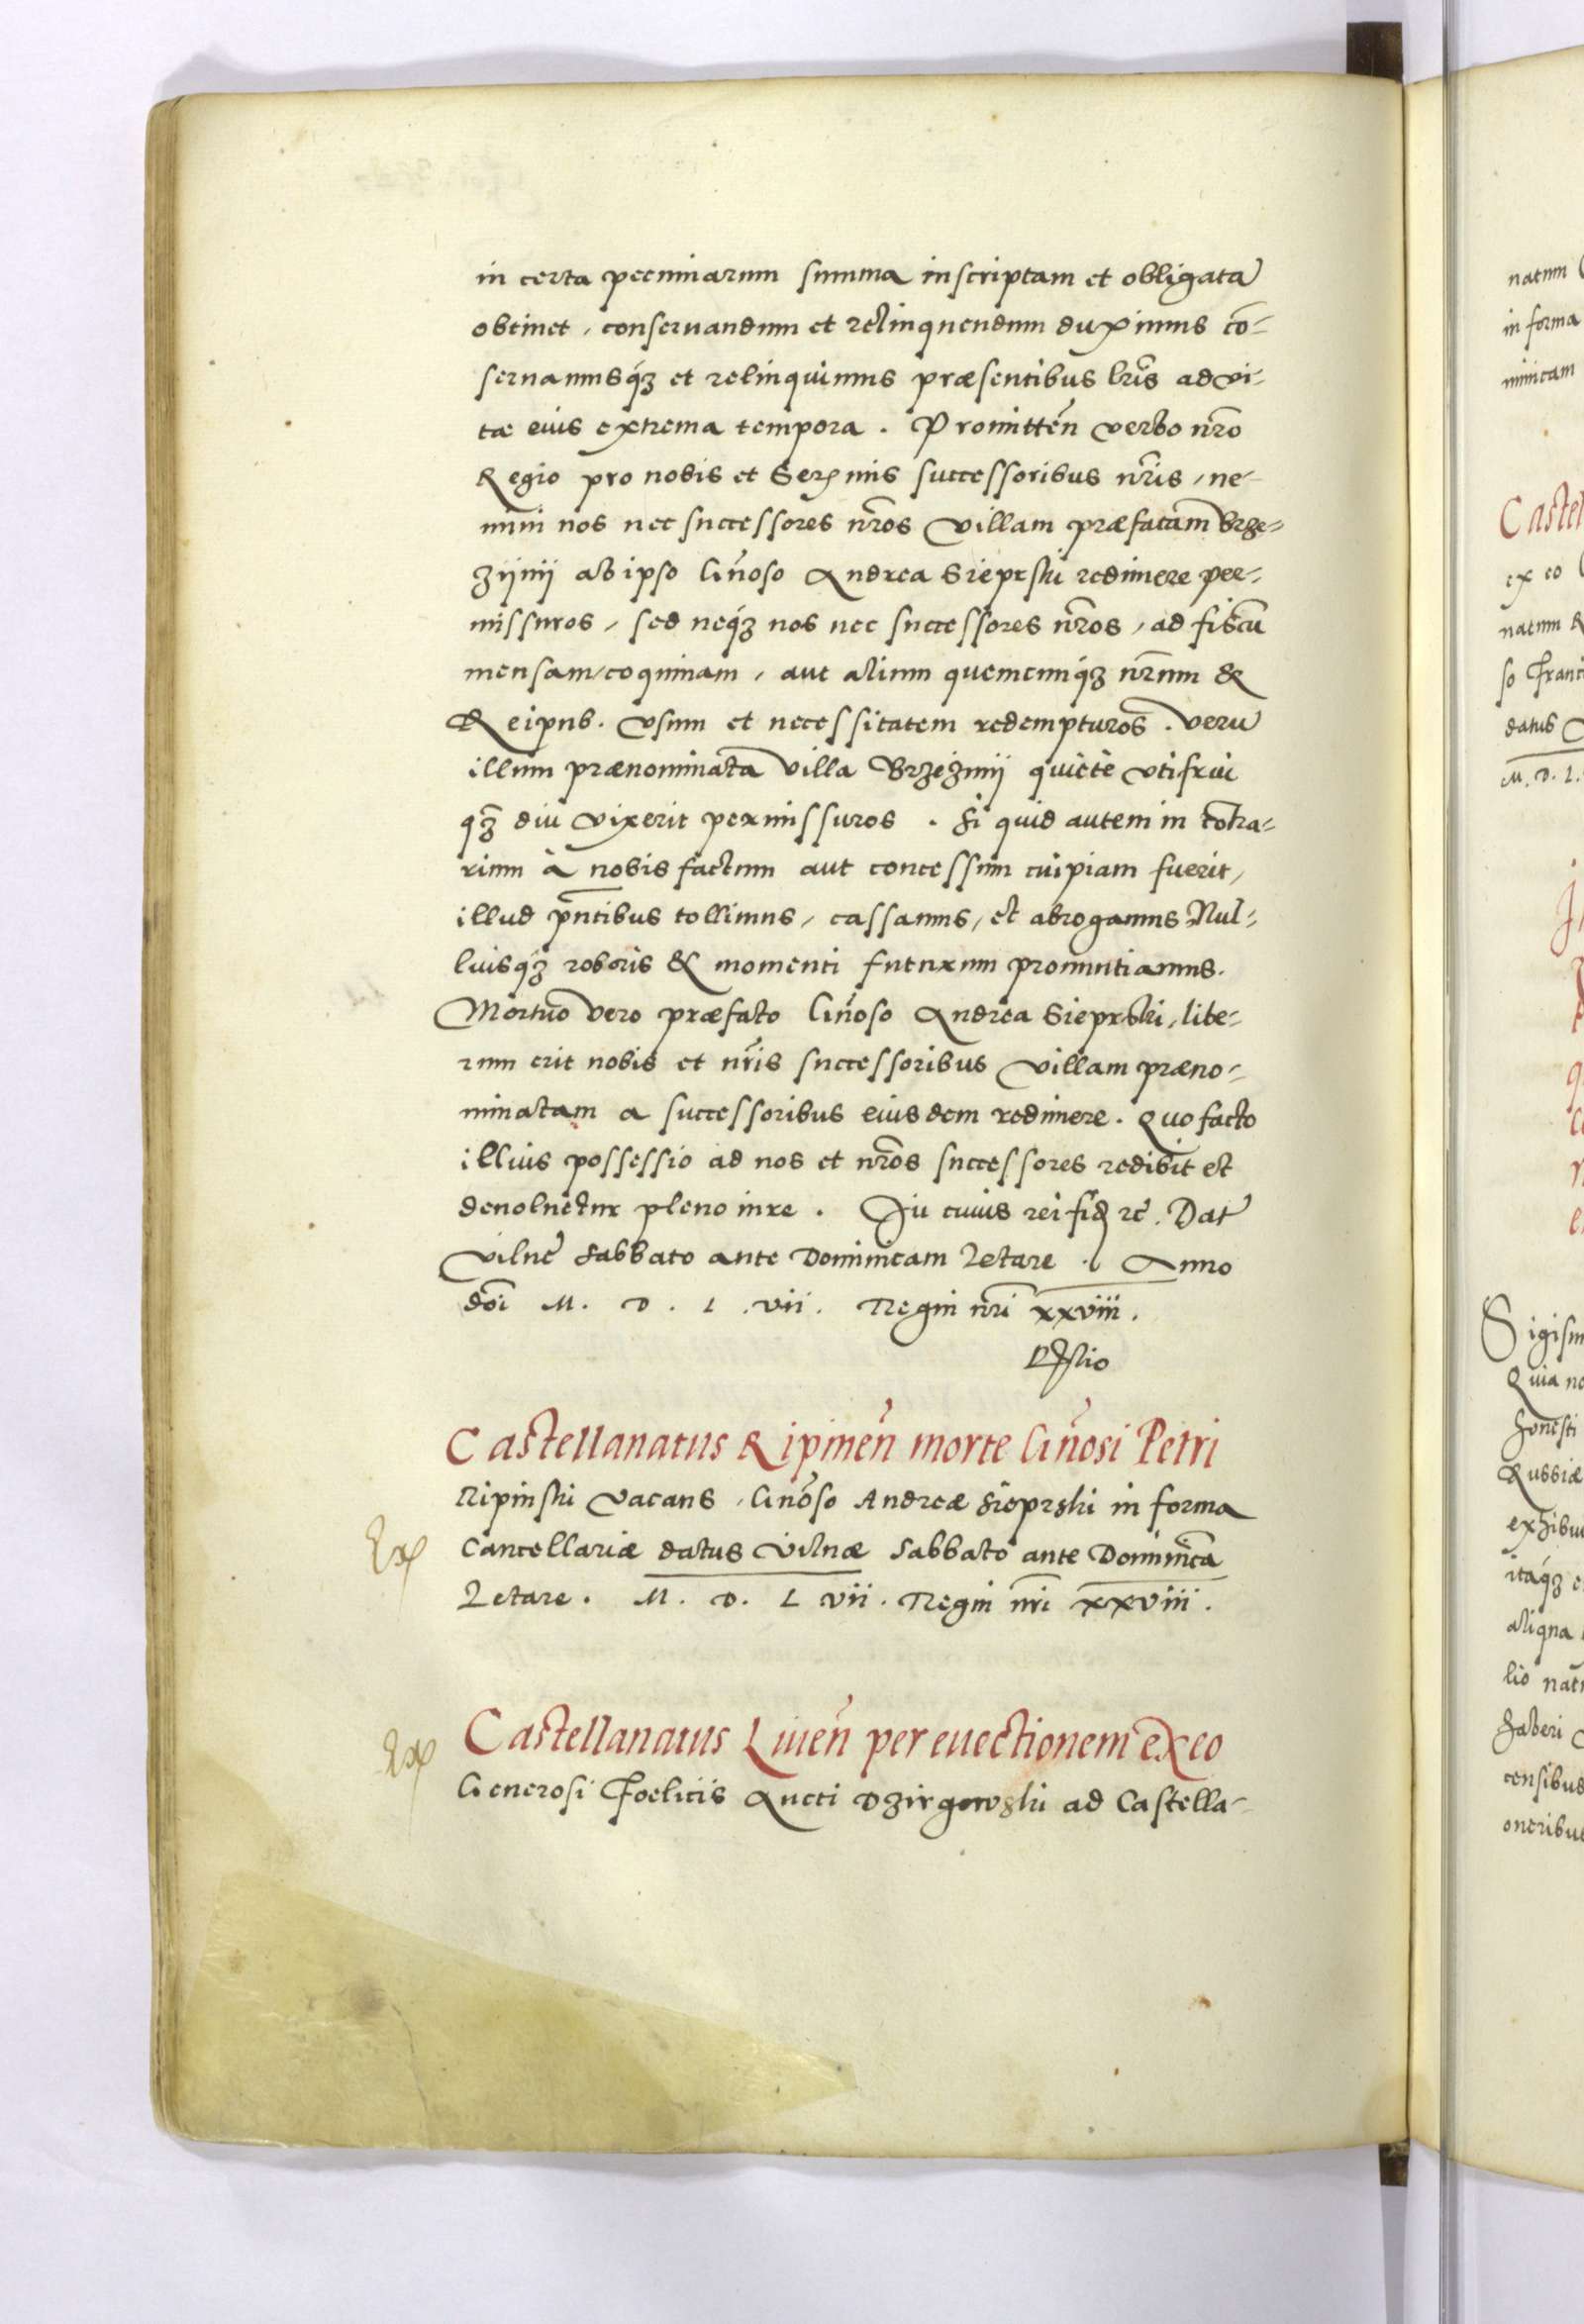 in certa pecuniarum summa inscriptam et obligatã
obtinet, conseruandum et relinquendum duximus cõ-
seruamusq́ꝫ et relinquimus præsentibus lr̃is ad vi-
tæ eius extrema tempora. Promitteñ verbo nr̃o
Regio pro nobis et Ser̃mis successoribus nr̃is, ne-
mini nos nec successores nr̃os villam præfatam Brze-
zijnij ab ipso Gn̄oso Andrea Sieprski redimere per-
missuros, sed neq́ꝫ nos nec successores nr̃os, ad fiscũ
mensam, coquinam, aut alium quemcunq́ꝫ nr̃um &
Reipub. vsum et necessitatem redempturos. verũ
illum prænominata villa Brzezinij quietè vti frui
q̃ꝫ diu vixerit permissuros. Si quid autem in cõtra-
rium à nobis factum aut concessum cuipiam fuerit,
illud pñtibus tollimus, cassamus, et abrogamus Nul-
liusq́ꝫ roboris & momenti futurum pronuntiamus.
Mortuo vero præfato Gn̄oso Andrea Sieprski, libe-
rum erit nobis et nr̃is successoribus villam præno-
minatam a successoribus eiusdem redimere. Quo facto
illius possessio ad nos et nr̃os successores redibit et
deuoluetur pleno iure. In cuius rei fid̃ rc̃. Dat̃
Vilnę Sabbato ante Dominicam Letare. Anno
doi M. D. L. vii. Regni nr̃i xxviii.
Castellanatus Ripineñ morte Gn̄osi Petri
Ripinski vacans, Gnõso Andreæ Sieprski in forma
Ex Cancellariæ datus Vilnæ Sabbato ante Dominicã
Letare. M. D. L vii. Regni nr̃i xxviii.
Ex Castellanatus Liueñ per euectionem ex eo
Generosi Foelicis Ancti Dzirgowski ad Castella-
natum
in forma
minicam
Castel
ex eo
natum
so Franci
datus
M. D. L.
Sigism
Quia no
honesti
Russiæ
exhibu
itaq́ꝫ
aliqua
lio
haberi
censibus
oneribus